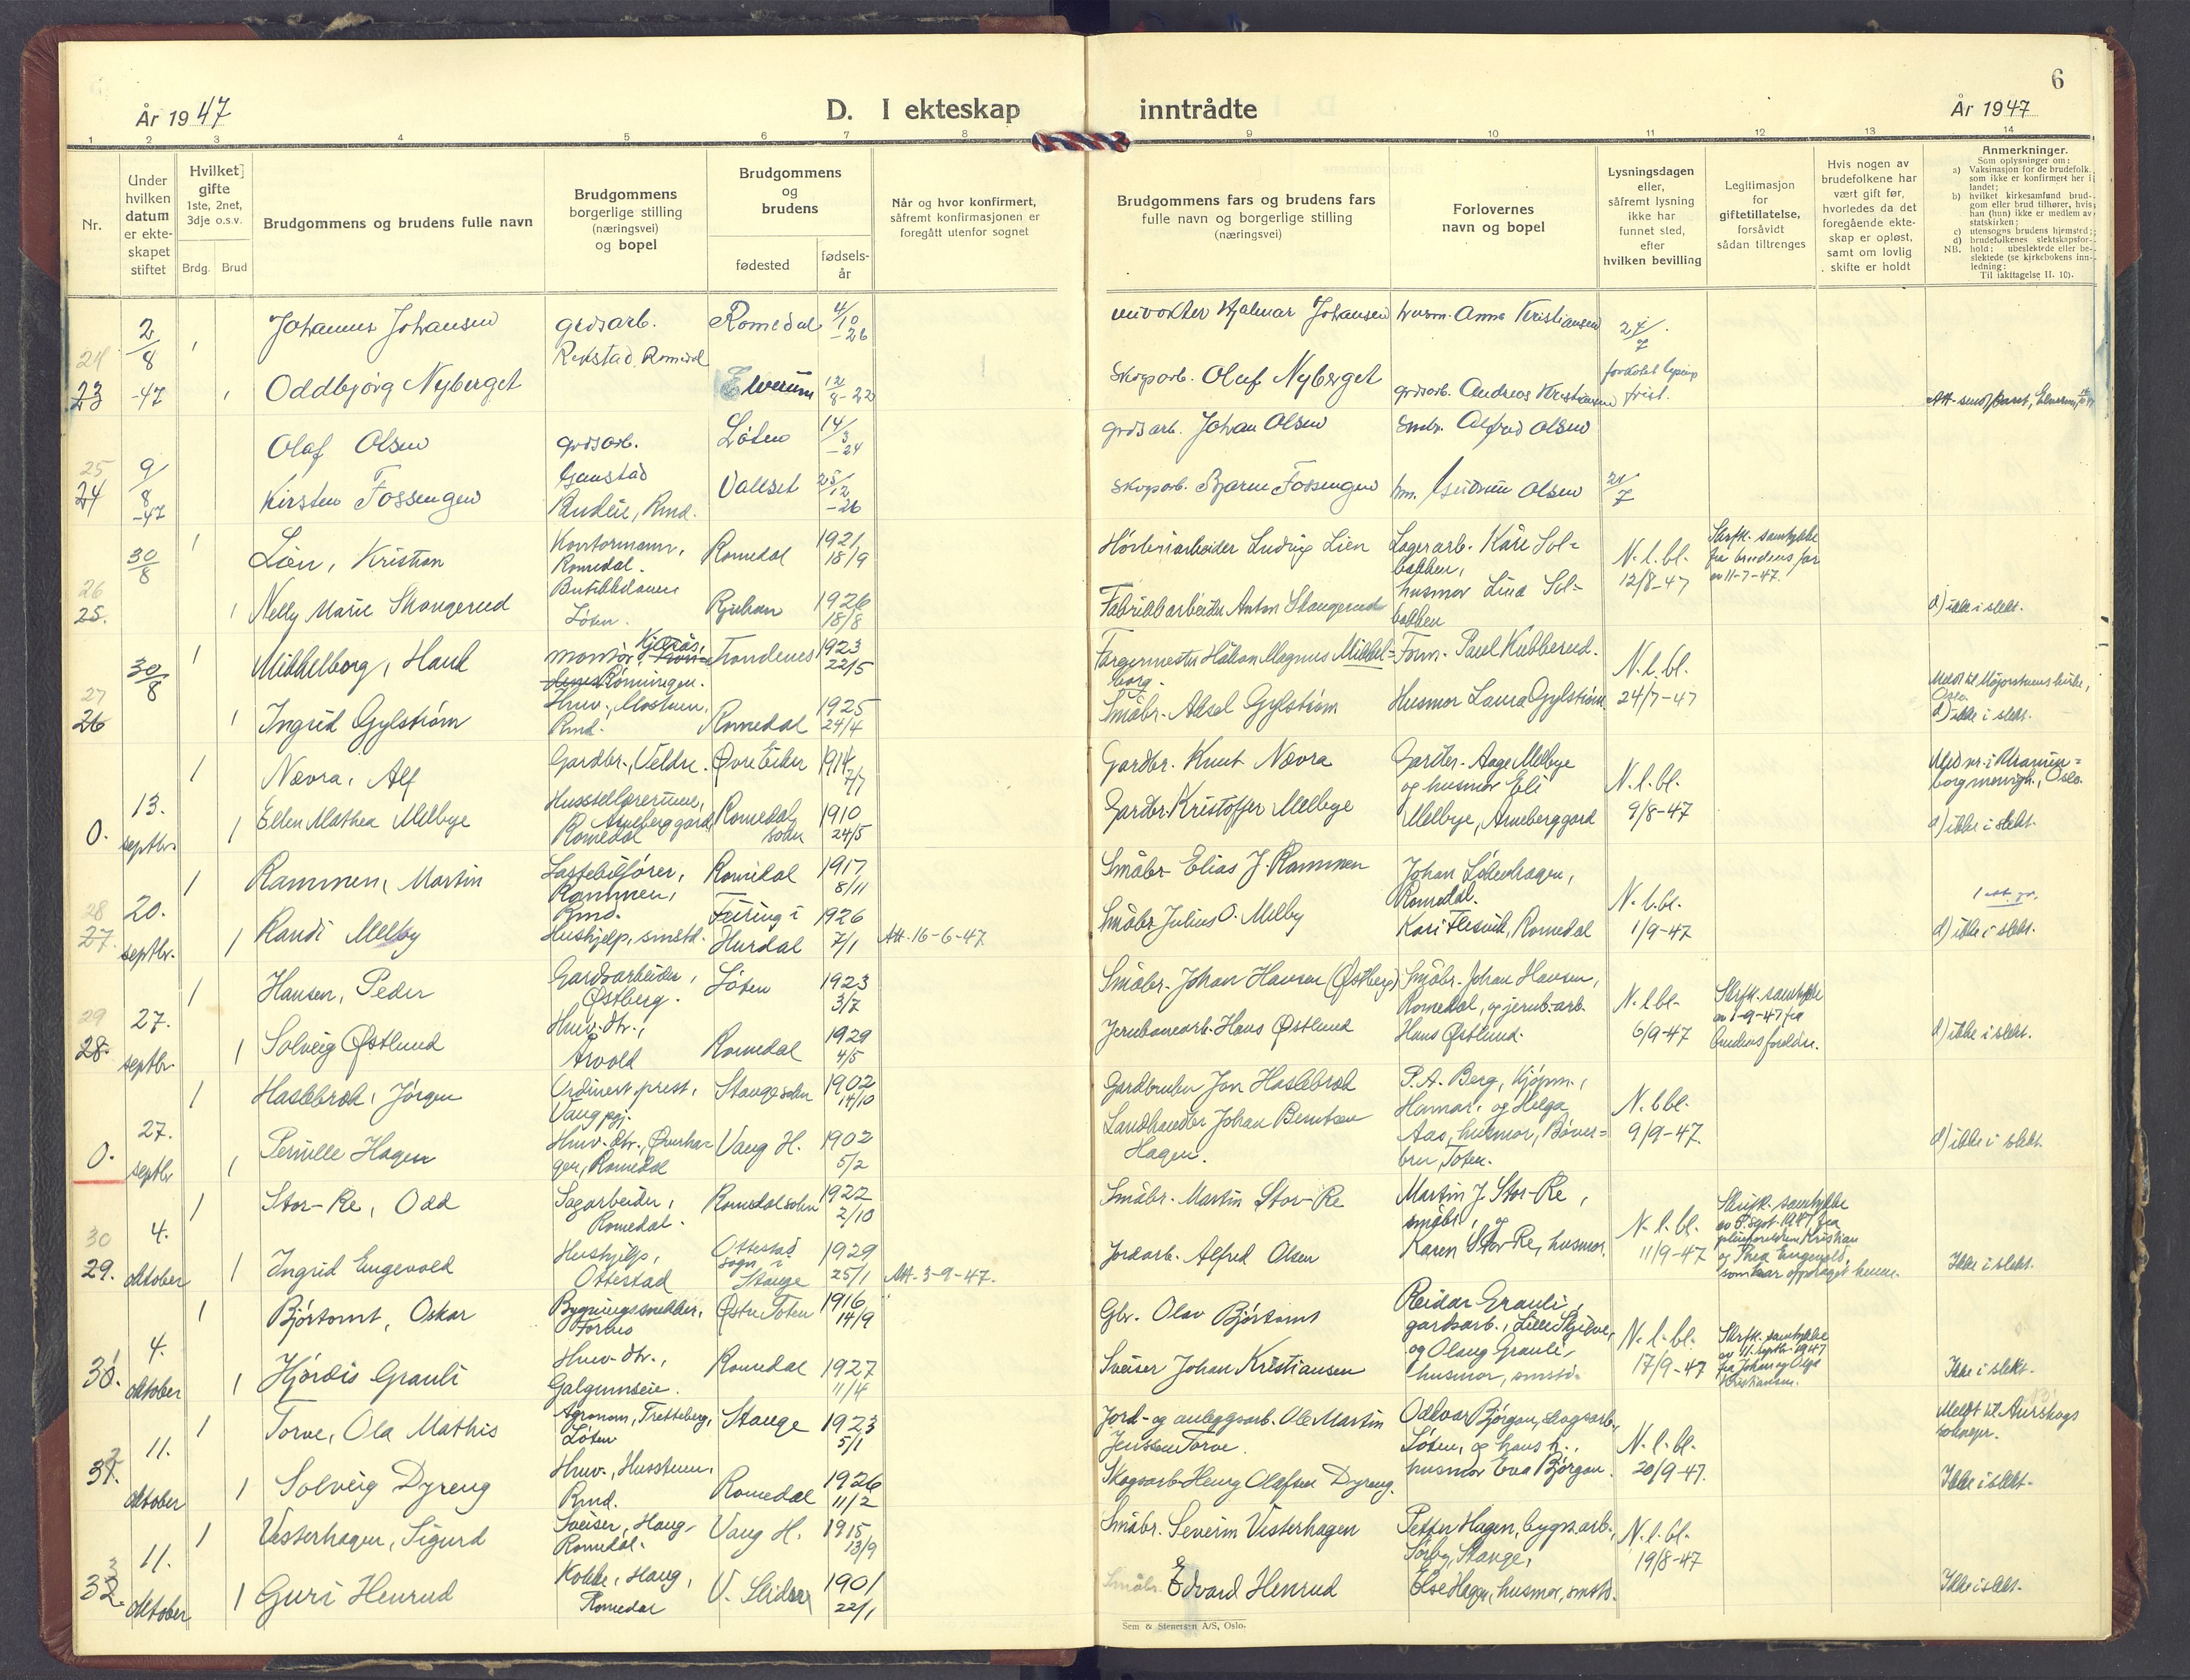 6
År 1947
D. I ekteskap inntrådte
År 1947
1 2 3 4 5 6 7 8 9 10 11 12 13 14
Nr.
Under hvilken datum er ekteskapet stiftet
Hvilket gifte 1ste, 2net, 3dje o.s.v.
Brdg. Brud
Brudgommens og brudens fulle navn
Brudgommens borgerlige stilling (næringsvei) og bopel
Brudgommens og brudens
fødested
fødselsår
Når og hvor konfirmert, såfremt konfirmasjonen er foregått utenfor sognet
Brudgommens fars og brudens fars fulle navn og borgerlige stilling (næringsvei)
Forlovernes navn og bopel
Lysningsdagen eller, såfremt lysning ikke har funnet sted, efter hvilken bevilling
Legitimasjon for giftetillatelse, forsåvidt sådan tiltrenges
Hvis nogen av brudefolkene har vært gift før, hvorledes da det foregående ekteskap er opløst, samt om lovlig skifte er holdt
Anmerkninger.
Som oplysninger om:
a) Vaksinasjon for de brudefolk som ikke er konfirmert her i landet;
b) hvilket kirkesamfund brudgom eller brud tilhører, hvis han (hun) ikke er medlem av statskirken;
c) utensogns brudens hjemsted;
d) brudefolkenes slektskapsforhold: ubeslektede eller beslektede (se kirkebokens innledning:
NB.
Til iakttagelse II. 10).
24 23 2/8 -47
1 Johannes Johansen grdsarb. Rekstad, Romedal Romedal 4/10 -26 Hjalmar Johansen husm. Anna Kristiansen 24/7
1 Oddbjørg Nyberget Elverum 12/8-22 Skogsarb. Oluf Nyberget grdsarb. Andreas Kristiansen frist.
25 24 9/8 -47
Olaf Olsen grdsarb. Gaustad Løten 14/3 -24 grdsarb. Johan Olsen Smbr. Alfred Olsen
Kirsten Fossengen Rmd. Vallset 25/12 -26 Skogsarb. Bjarne Fossengen hm. Gudrun Olsen 21/7
26 25. 30/8
1 Lien, Kristian Kontormann, Romedal. Romedal 1921 18/9 Ludvig Lien Lagerarb. Kåre Solbakken, N.l.bl. 12/8-47 Skrftl. samtykke fra brudens far av 11-7-47.
1 Nelly Marie Skaugerud Løten. Rjukan 1926 18/8 Fabrikkarbeider Anton Skaugerud husmor Lina Solbakken d) ikke i slekt.
27 26 30/8
1 Mikkelborg, Hauk montør, Kjelsås, Rønningen. Trondenes 1923 22/5 Fargermester Håkon Magnus Mikkelborg. Form. Paul Kubberud. N.l.bl. Meldt til Majorstuens kirke, Oslo
1 Ingrid Gylstrøm Hmv., Mostuen, Rmd. Romedal 1925 24/4 Småbr. Aksel Gylstrøm Husmor Laura Gylstrøm 24/7-47 d) ikke i slekt.
0. 13. septbr.
1 Nævra, Alf Gardbr., Veldre. Øvre Eiker 1914 7/7 Gardbr. Knut Nævra Gardbr. Aage Melbye og husmor Eli N.l.bl. Meld nr. i Uranienborg menigh., Oslo.
1 Ellen Mathea Melbye Husstellærerinne, Arneberg gard, Romedal Romedal sokn 1910 24/5 Gardbr. Kristoffer Melbye Melbye, Arneberg gard 9/8-47 d) ikke i slekt.
28 27. 20. septbr.
1 Rammen, Martin Lastebilfører, Rammen, Rmd. Romedal 1917 8/11 Småbr. Elias J. Rammen Johan Løbenhagen, Romedal. N.l.bl. 1 att. gr.
1 Randi Melby Hushjelp, smstd. Feiring i Hurdal 1926 7/1 Att. 16-6-47 Småbr. Julius O. Melby Kari Flesvik, Romedal 1/9-47 d) ikke i slekt.
29 28. 27. septbr.
1 Hansen, Peder Gardsarbeider, Østberg. Løten 1923 3/7 Småbr. Johan Hansen (Østberg) Småbr. Johan Hansen, Romedal, og jernb.arb. N.l.bl. Skrftl. samtykke av 1-9-47 fra
1 Solveig Østlund Hmv. dtr., Arvold Romedal 1929 4/5 Jernbanearb. Hans Østlund Hans Østlund. 6/9-47 brudens foreldre. d) ikke i slekt.
0. 27. septbr
1 Haslebrek, Jørgen Ordinert prest, Vang pgj. Stange sokn 1902 14/10 Gardbruker Jon Haslebrek P.A. Berg, kjøpm., Hamar, og Helga N.l.bl.
1 Pernille Hagen Hmv. dtr., Øverhagen, Romedal Vang H. 1902 5/2 Landhandler Johan Berntsen Hagen. Aas, husmor, Bøverbru, Toten. 9/9-47. d) ikke i slekt.
30 29. 4. oktober
1 Stor-Re, Odd Sagarbeider, Romedal. Romedal sokn 1922 2/10 Småbr. Martin Stor-Re Martin J. Stor-Re, småbr., og N.l.bl. Skriftl. samtykke av 5. sept. 1947 fra pleieforeldrene Kristian
1 Ingrid Engevold Hushjelp, Ottestad Ottestad sogn i Stange 1929 25/1 Att. 3-9-47. Jordarb. Alfred Olsen Karen Stor-Re, husmor. 11/9-47 og Thea Engevold, som har oppdraget henne. Ikke i slekt.
31. 4. oktober
1 Bjørtomt, Oskar Bygningssnekker, Østre Toten 1916 14/9 Gbr. Olav Bjørtomt Reidar Grauli, gardsarb., Lille Skjelve, N.l.bl. Skrftl. samtykke av 11. septbr. 1947
1 Hjørdis Grauli Hmv. dtr., Galgumseie. Romedal 1927 11/4 Sveiser Johan Kristiansen og Olaug Grauli, husmor, smstd. 17/9-47 fra Johan og Olga Kristiansen. Ikke i slekt.
32. 11. oktober
1 Torve, Ola Mathis Agronom, Tretteberg, Løten Stange 1923 5/1 Jord- og anleggsarb. Ole Martin Jenssen Torve. Oddvar Bjørgan, skogsarb., Løten, og hans h., N.l.bl. Meldt til Aurskogs sokneprr.
1 Solveig Dyreng Hmv., Husstuen, Rmd. Romedal 1926 11/2 Skogsarb. Henry Olafsen Dyreng. husmor Eva Bjørgan. 20/9-47. Ikke i slekt.
33. 11. oktober
1 Vesterhagen, Sigurd Sveiser, Haug, Romedal. Vang H. 1915 13/9 Småbr. Severin Vesterhagen Petter Hagen, bygn.arb., Sørby, Stange, N.l.bl.
1 Guri Henrud Kokke, Haug, Romedal V. Slidre 1901 22/1 Småbr. Edvard Henrud Else Hagen, husmor, smstd. 19/8-47 Ikke i slekt.
Sem & Stenersen A/S, Oslo.